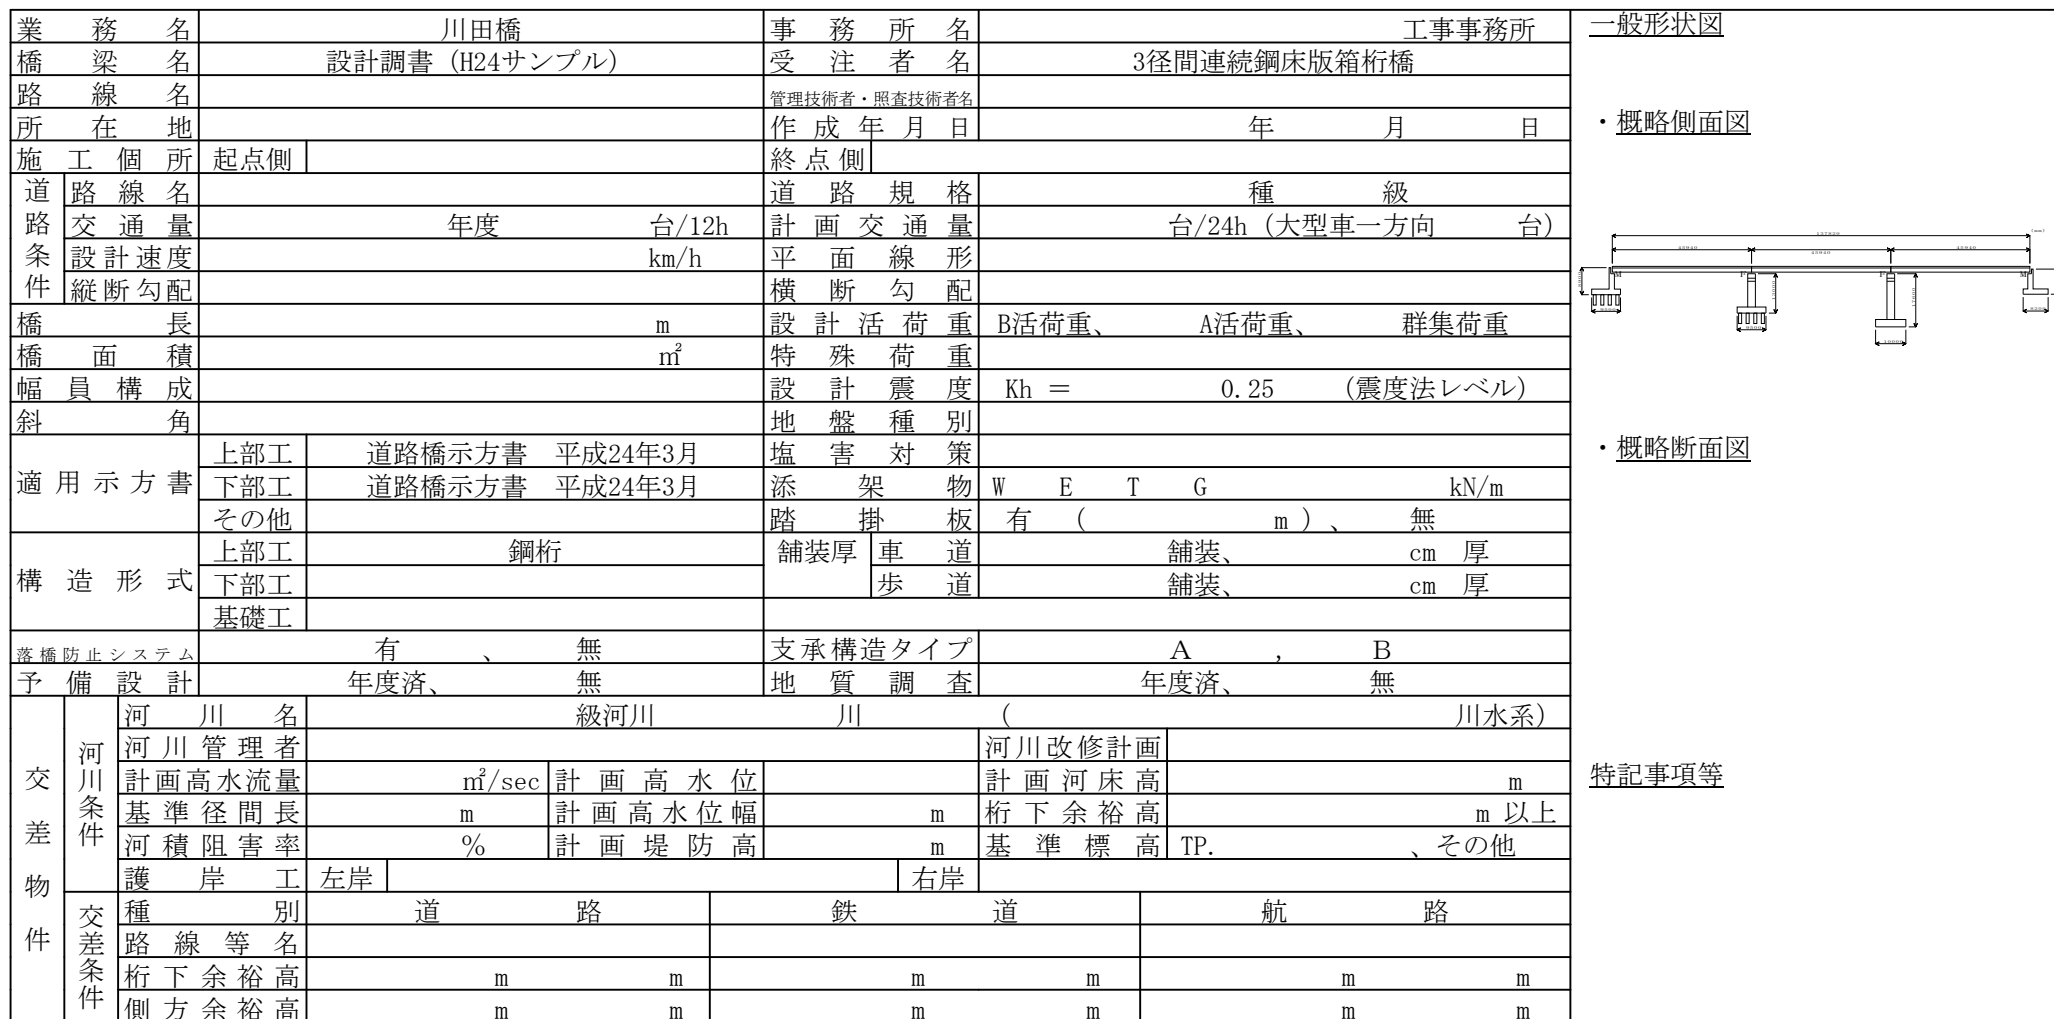 業務名 川田橋 事務所名 工事事務所
橋梁名 設計調書 (H24サンプル) 受注者名 3径間連続鋼床版箱桁橋
路線名 管理技術者・照査技術者名
所在地 作成年月日 年 月 日
施工個所 起点側 終点側
道路条件
路線名 道路規格 種 級
交通量 年度 台/12h 計画交通量 台/24h (大型車一方向 台)
設計速度 km/h 平面線形
縦断勾配 横断勾配
橋長 m 設計活荷重 B活荷重、 A活荷重、 群集荷重
橋面積 ㎡ 特殊荷重
幅員構成 設計震度 Kh = 0.25 (震度法レベル)
斜角 地盤種別
適用示方書
上部工 道路橋示方書 平成24年3月 塩害対策
下部工 道路橋示方書 平成24年3月 添架物 W E T G kN/m
その他 踏掛板 有 ( m )、 無
構造形式
上部工 鋼桁 舗装厚 車道 舗装、 cm 厚
下部工 歩道 舗装、 cm 厚
基礎工
落橋防止システム 有 、 無 支承構造タイプ A , B
予備設計 年度済、 無 地質調査 年度済、 無
交差物件
河川条件
河川名 級河川 川 ( 川水系)
河川管理者 河川改修計画
計画高水流量 ㎡/sec 計画高水位 計画河床高 m
基準径間長 m 計画高水位幅 m 桁下余裕高 m 以上
河積阻害率 % 計画堤防高 m 基準標高 TP. 、その他
護岸工 左岸 右岸
交差条件
種別 道路 鉄道 航路
路線等名
桁下余裕高 m m m m m m
側方余裕高 m m m m m m
一般形状図
・概略側面図
137820
45940 45940 45940
・概略断面図
特記事項等